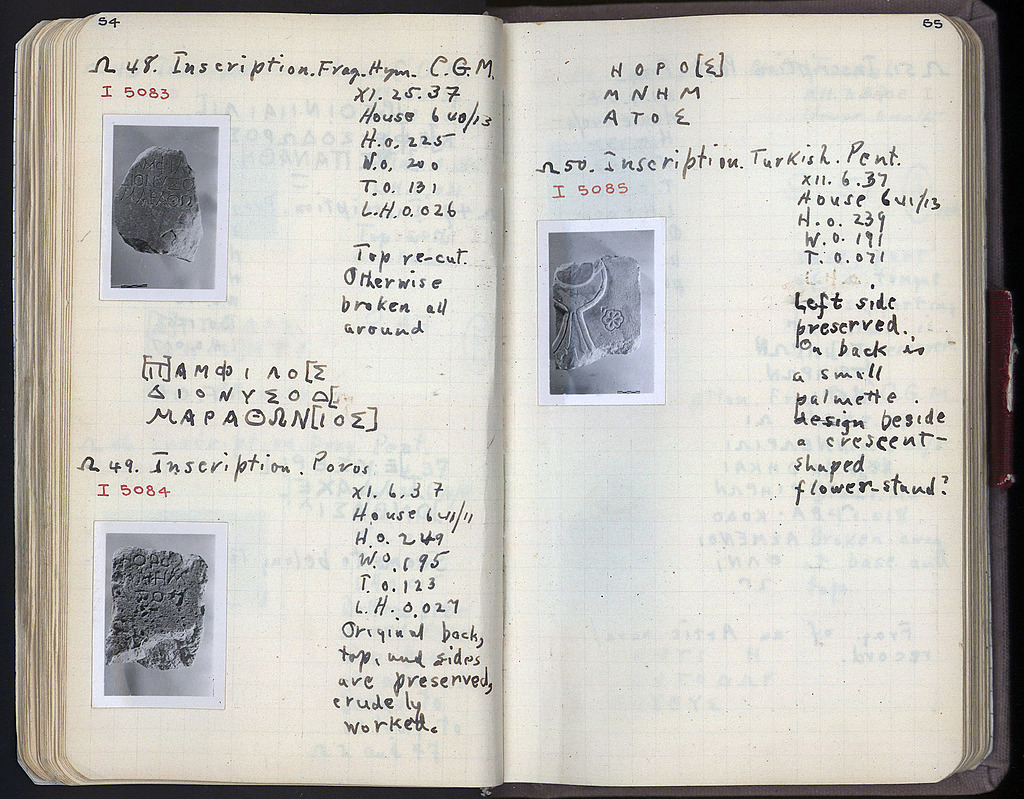 54
Ω 48. Inscription. Frag. Hym. C.G.M.
I 5083
XI. 25. 37
House 640/13
H. 0. 225
W. 0. 200
T. 0. 131
L.H. 0.026
Top re-cut.
Otherwise
broken all
around
[Π]ΑΜΦΙΛΟ[Σ
ΔΙΟΝΥΣΟΔ[
ΜΑΡΑΘΩΝ[ΙΟΣ]
Ω 49. Inscription. Poros
I 5084
XI. 6. 37
House 641/11
H. 0. 249
W. 0. 195
T. 0. 123
L.H. 0.027
Original back,
top, and sides
are preserved,
crudely
worked.
55
ΗΟΡΟ[Σ]
ΜΝΗΜ
ΑΤΟΣ
Ω 50. Inscription. Turkish. Pent.
I 5085
XII. 6. 37
House 641/13
H. 0. 239
W. 0. 191
T. 0.071
Left side
preserved.
On back is
a small
palmette.
design beside
a crescent-
shaped
flower-stand?